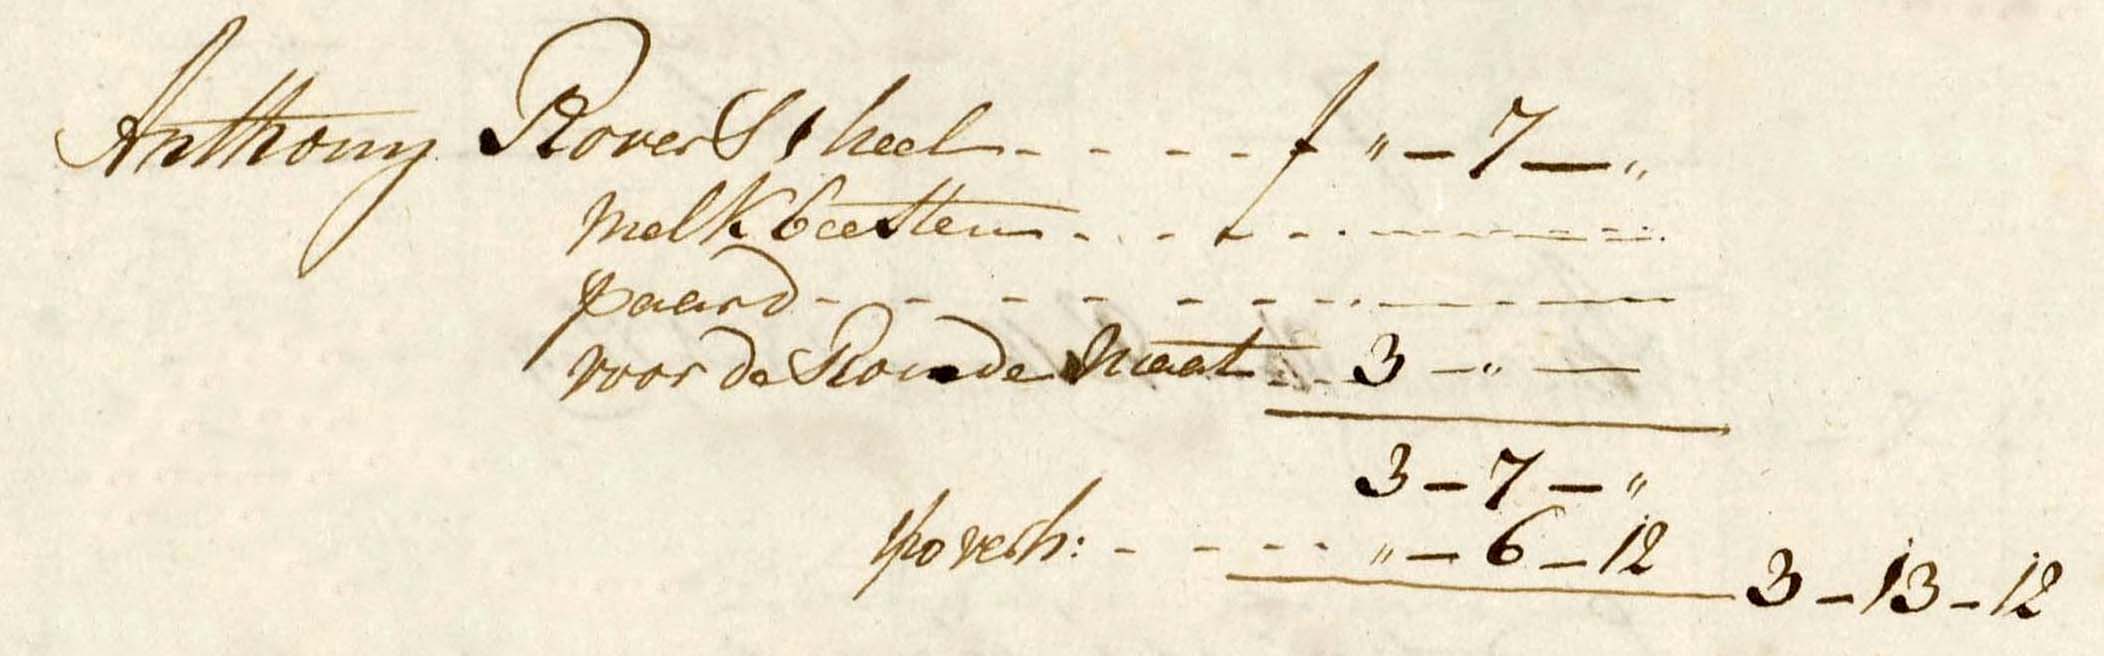 Anthony Rovers 1 heel - - - - f " - 7 - "
melkbeesten - - - - - - -
paard - - - - - - - -
voor de Ronde Maat - - 3 - " -
3 - 7 - "
po verh: - - - - " - 6 - 12 3 - 13 - 12